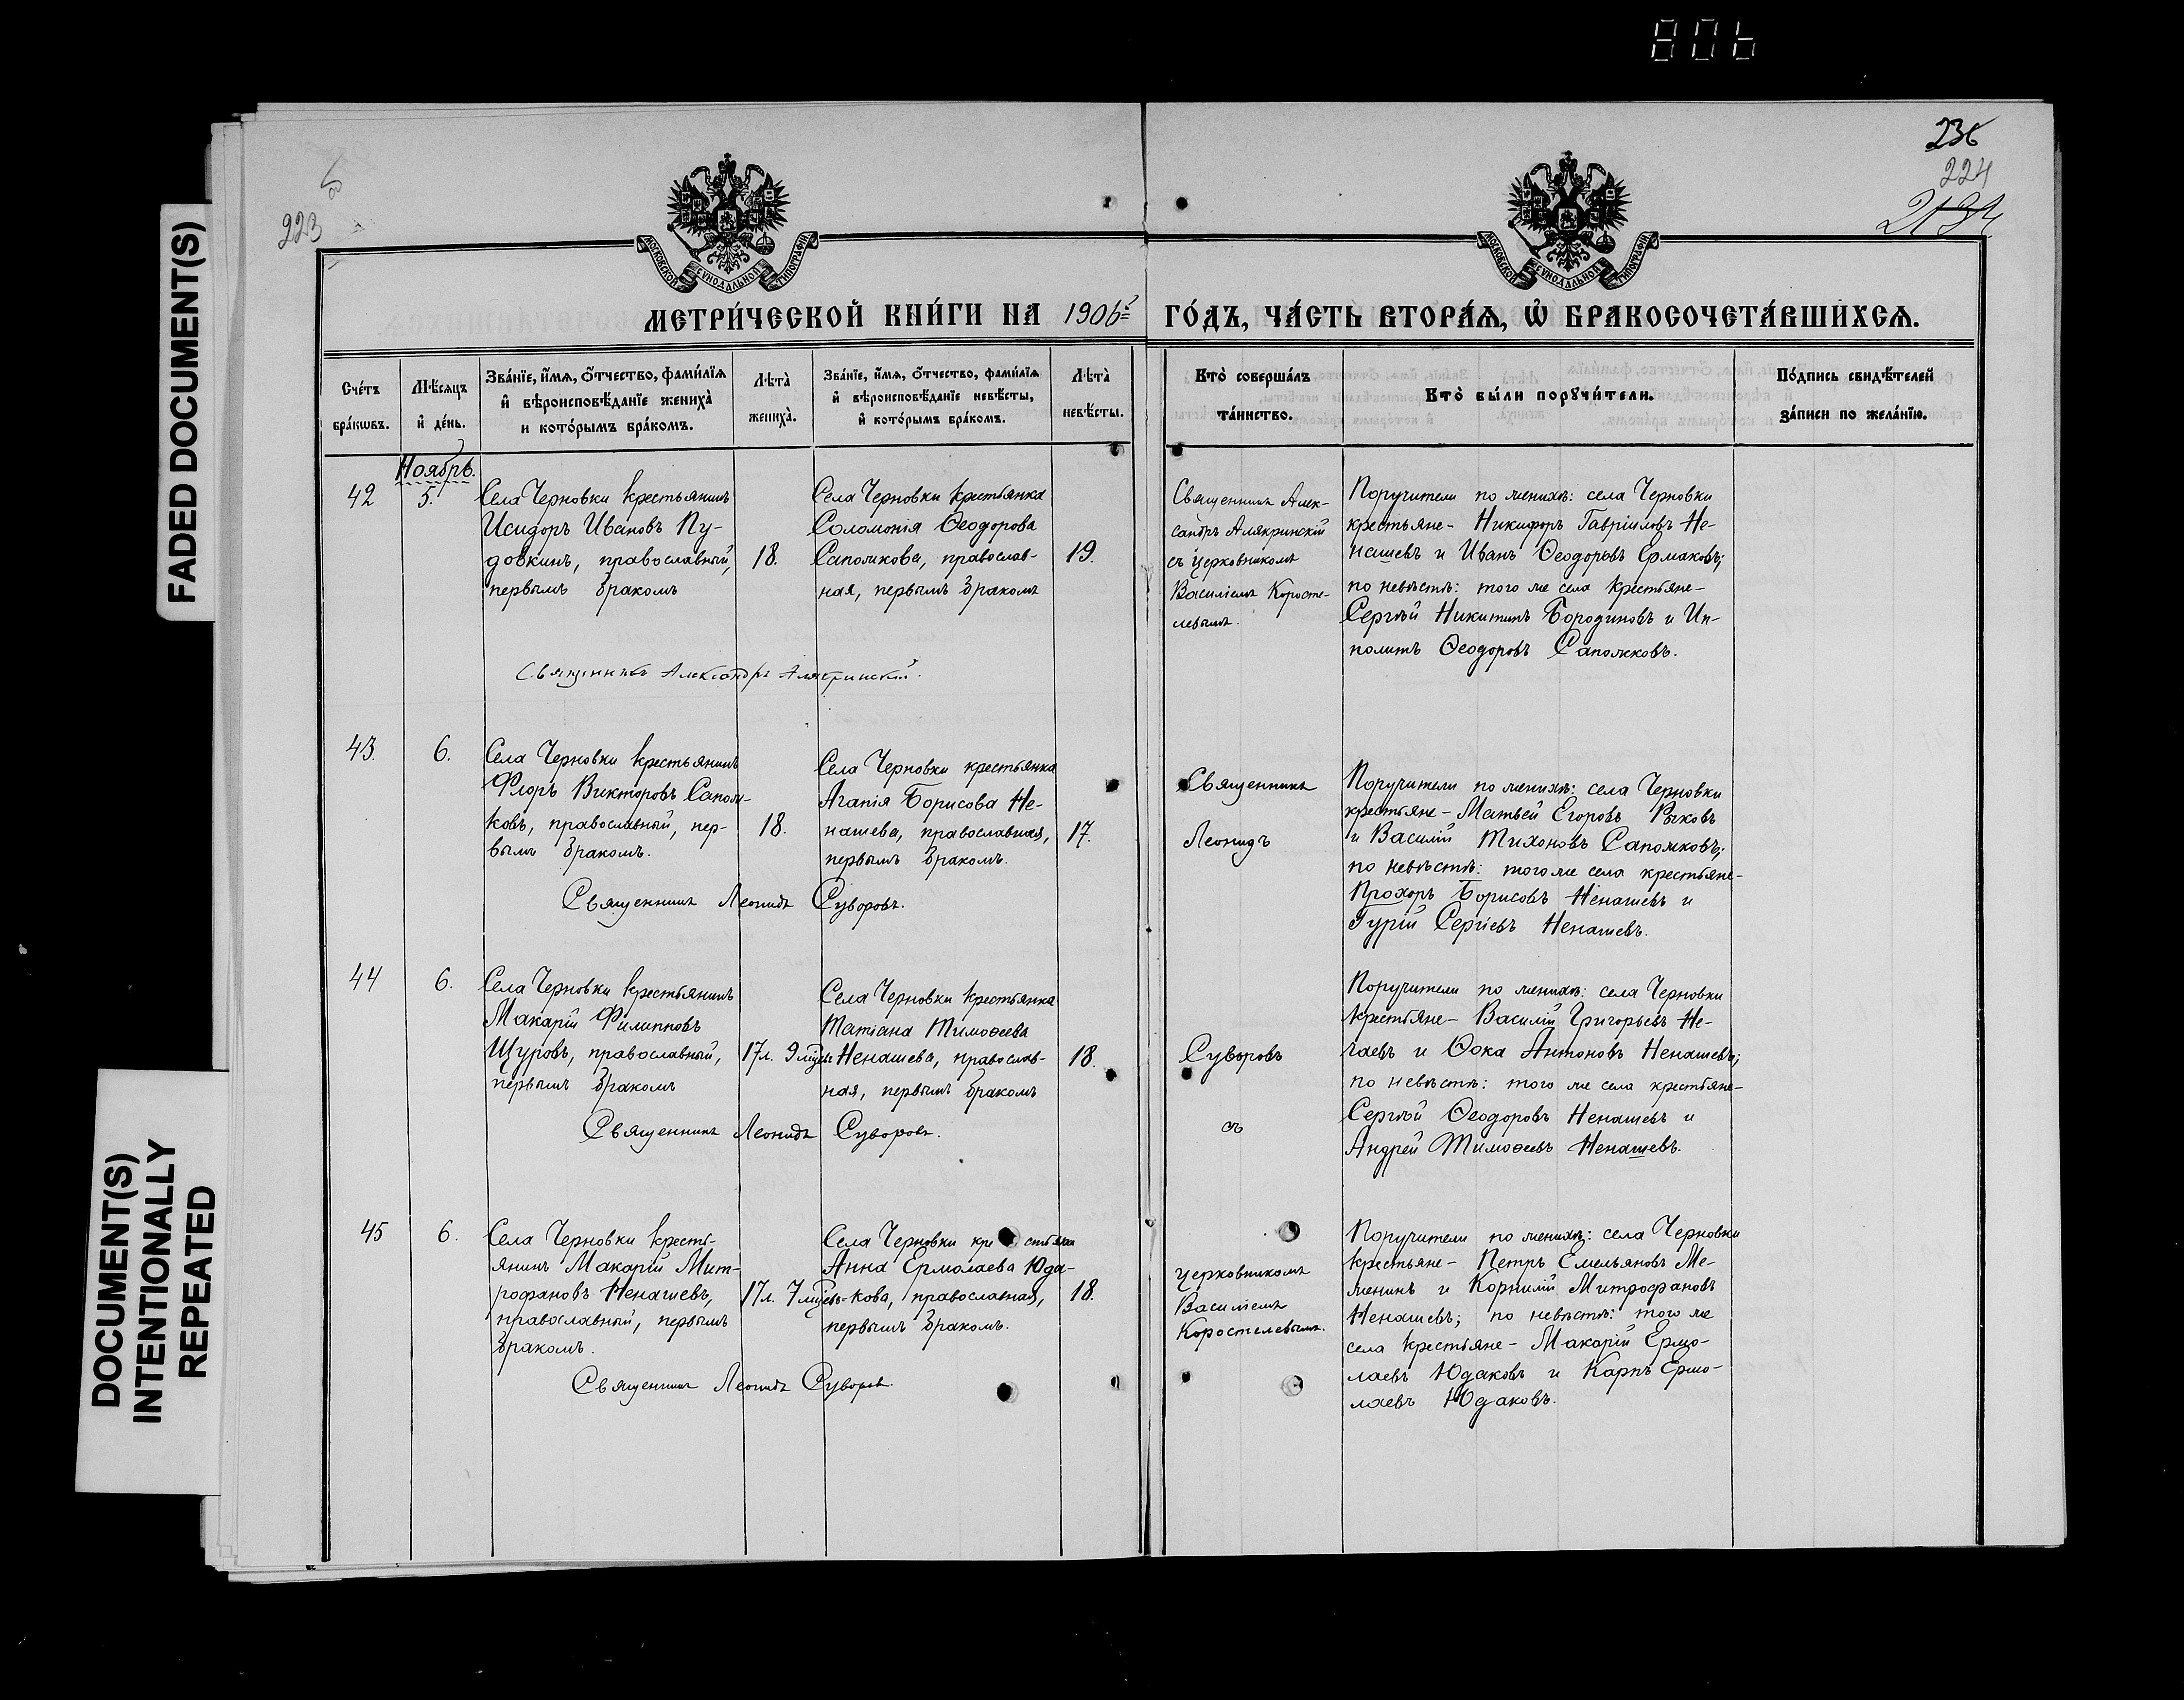 806
FADED DOCUMENT(S)
DOCUMENT(S)
INTENTIONALLY
REPEATED
223
236
224
МОСКОВСКОЙ СѴНОДАЛЬНОЙ ТИПОГРАФІИ
МОСКОВСКОЙ СѴНОДАЛЬНОЙ ТИПОГРАФІИ
МЕТРИ́ЧЕСКОЙ КНИ́ГИ НА 1906 ГО́ДЪ, ЧА́СТЬ ВТОРА́Ѧ, Ѡ҆ БРАКОСОЧЕТА́ВШИХСѦ.
Сче́тъ бра́кѡвъ.
Мѣ́сяцъ и҆ де́нь.
Зва́нїе, и҆́мѧ, ѻ҆́тчество, фами́лїѧ
и҆ вѣроисповѣ́данїе жениха̀
и кото́рымъ бра́комъ.
Лѣта̀ жениха̀.
Зва́нїе, и҆́мѧ, ѻ҆́тчество, фами́лїѧ
и҆ вѣроисповѣ́данїе невѣ́сты,
и҆ кото́рымъ бра́комъ.
Лѣта̀ невѣ́сты.
Кто̀ соверша́лъ
та́инство.
Кто̀ бы́ли порꙋчи́тели.
По́дпись свидѣ́телей
за́писи по жела́нїю.
Ноябрь.
42
5.
Села Черновки крестьянинъ
Исидоръ Ивановъ Пу-
довкинъ, православный,
первымъ бракомъ
18.
Села Черновки крестьянка
Соломонія Ѳеодорова
Сапожкова, православ-
ная, первымъ бракомъ
19.
Священникъ Алек-
сандръ Алякринскій
съ церковникомъ
Василіемъ Коросте-
левымъ.
Поручители по женихѣ: села Черновки
крестьяне- Никифоръ Гавріиловъ Не-
нашевъ и Иванъ Ѳеодоровъ Ермаковъ;
по невѣстѣ: того же села крестьяне-
Сергѣй Никитинъ Бородиновъ и Ип-
политъ Ѳеодоровъ Сапожковъ.
Священникъ Александръ Алякринскій.
43.
6.
Села Черновки крестьянинъ
Флоръ Викторовъ Сапож-
ковъ, православный, пер-
вымъ бракомъ.
18.
Села Черновки крестьянка
Агапія Борисова Не-
нашева, православная,
первымъ бракомъ.
17.
Священникъ
Леонидъ
Поручители по женихѣ: села Черновки
крестьяне- Матвей Егоровъ Рыковъ
и Василій Тихоновъ Сапожковъ;
по невѣстѣ: того же села крестьяне-
Прохоръ Борисовъ Ненашевъ и
Гурій Сергіевъ Ненашевъ.
Священникъ Леонидъ Суворовъ.
44
6.
Села Черновки крестьянинъ
Макарій Филипповъ
Щуровъ, православный,
первымъ бракомъ
17л. 9 мѣсяц.
Села Черновки крестьянка
Татіана Тимоѳеева
Ненашева, православ-
ная, первымъ бракомъ
18.
Суворовъ
съ
Поручители по женихѣ: села Черновки
крестьяне- Василій Григорьевъ Не-
чаевъ и Ѳока Антоновъ Ненашевъ;
по невѣстѣ: того же села крестьяне-
Сергѣй Ѳеодоровъ Ненашевъ и
Андрей Тимоѳеевъ Ненашевъ.
Священникъ Леонидъ Суворовъ.
45
6.
Села Черновки кресть-
янинъ Макарій Мит-
рофановъ Ненашевъ,
православный, первымъ
бракомъ.
17л. 7 мѣсяц.
Села Черновки крестьянка
Анна Ермолаева Юда-
кова, православная,
первымъ бракомъ.
18.
церковникомъ
Василіемъ
Коростелевымъ.
Поручители по женихѣ: села Черновки
крестьяне- Петръ Емельяновъ Ме-
женинъ и Корнилій Митрофановъ
Ненашевъ; по невѣстѣ: того же
села крестьяне- Макарій Ермо-
лаевъ Юдаковъ и Карпъ Ермо-
лаевъ Юдаковъ.
Священникъ Леонидъ Суворовъ.